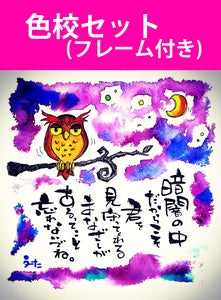 色校セット
(フレーム付き)
暗闇の中
だからこそ
君を
見守ってくれる
まなざしが
あるってこと
忘れないでね。
うーた